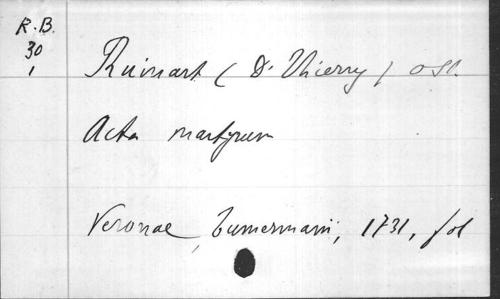 R.B.
30
1
Ruinart (Dr Thierry) OSB.
Acta martyrum
Veronae, Tumermani, 1731, fol